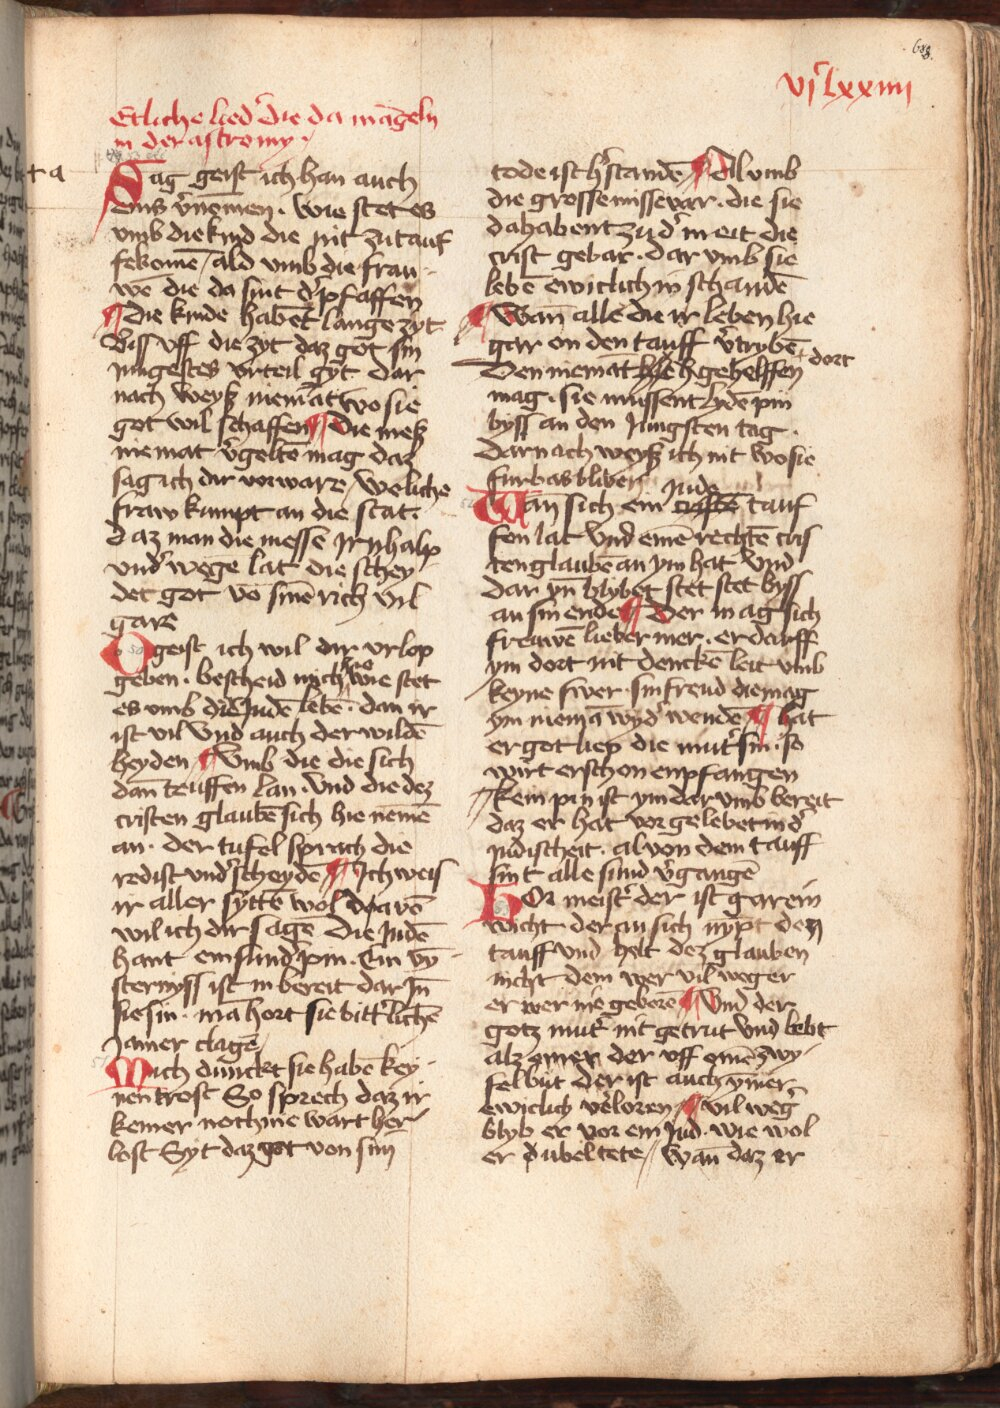 688.
vjᶜ lxxiiii
Etliche lied̉ die da mãgeln
in der astromy ·
+ a
Sag geist ich han auch
eins v̉nomen · wie stet es
vmb die kind die nit zu tauf
fe komē / ald vmb die frau-
wē die da sint d̉ pfaffen
¶ Die kinde habēt lange zyt
Biss vff die zyt daz got sin
jungestes vrteil gyt dar
nach weyß niemāt wo sie
got wil schaffen ¶ Die meß
niemāt v̉gelten mag daz
sag ich dir vorware / weliche
fraw kumpt an die stat ·
daz man die messē ir ynhalp
vnd̉ wege lat die schey-
det got võ sinē rich vil
gare
O geist ich wil dir vrlop
geben · bescheid mich wie stet
es vmb die Judē lebē · dan ir
ist vil vnd auch der wildē
heyden ¶ Vmb die die sich
dan teuffen lan · vnd die dez
cristen glaubē sich hie nemē
an · der tufel sprach die
red ist vnd̉scheydē ¶ Ich weis
ir aller syttē wol da võ
wil ich dir sagē die Judē
hant ein sund̉ pin · Ein vỹ-
sternyss ist in bereit dar Jn̄
sie sin · mā hort sie bitt̉lichē
Jamer clagē
Mich dunckt sie habē key-
nen trost So sprech daz ir
keiner noth nye wart her-
lost Syt daz got von sim
tode ist h̉standē ¶ Al vmb
die grosse missevar · die sie
da habent zu d̉ meit die
crist gebar · dar vmb sie
lebē ewiclich in schandē
¶ Wan alle die ir leben hie
gar on den tauff v̉trybē
Den niemāt gehelffen + dort
mag · sie mussent lydē pin
byss an den Jungsten tag ·
Darnach weyß ich nit wo sie
furbas bliben
Jude
Wan sich ein cristē tauf
fen lat vnd einē rechtē cris
ten glaubē an ym hat vnd
dar yn̄ blybet stet stet byss
an sin ende ¶ Der mag sich
freuwē lieber mer · er darff
ym dort nit denckē leit vmb
keyne swer · sin freud die mag
ym niemā wyd̉ wendē ¶ hat
er got liep die mut̉ sin · so
wirt er schon enpfangen
kein pin ist ym dar vmb bereit
daz er hat vor gelebet in d̉
judischeit · al von dem tauff
sint alle sünd v̉gangē
Hor meist̉ der ist gar ein
wicht · der an sich nypt den
tauff vnd helt dez glauben
nicht dem wer vil weger
er wer nie geborē ¶ Vnd der
gotz mut̉ nit getrut vnd lebt
alz einer der vff einē zwy-
fel but der ist auch ymer
ewiclich v̉loren ¶ vil weg̉
blyb er vor ein Jud · wie wol
er dubel tete / Wan daz er